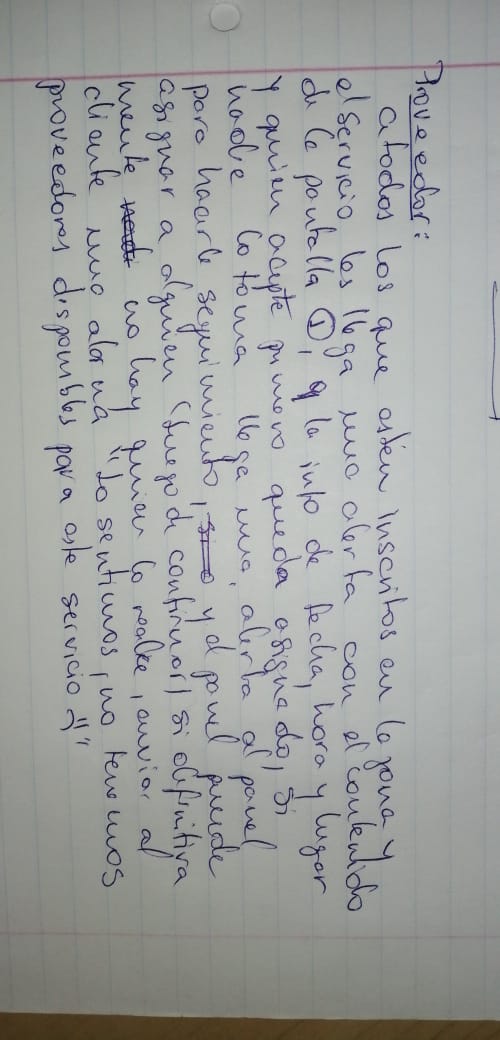 Proveedor:
a todos los que estén inscritos en la zona y
el servicio les llega una alerta con el contenido
de la pantalla ①, y la info de fecha, hora y lugar
y quien acepte primero queda asignado, si
nadie lo toma llega una alerta al panel
para hacerle seguimiento, y el panel puede
asignar a alguien (luego de confirmar) si definitiva
mente no hay quien lo realice, enviar al
cliente una alerta "lo sentimos, no tenemos
proveedores disponibles para este servicio =)"